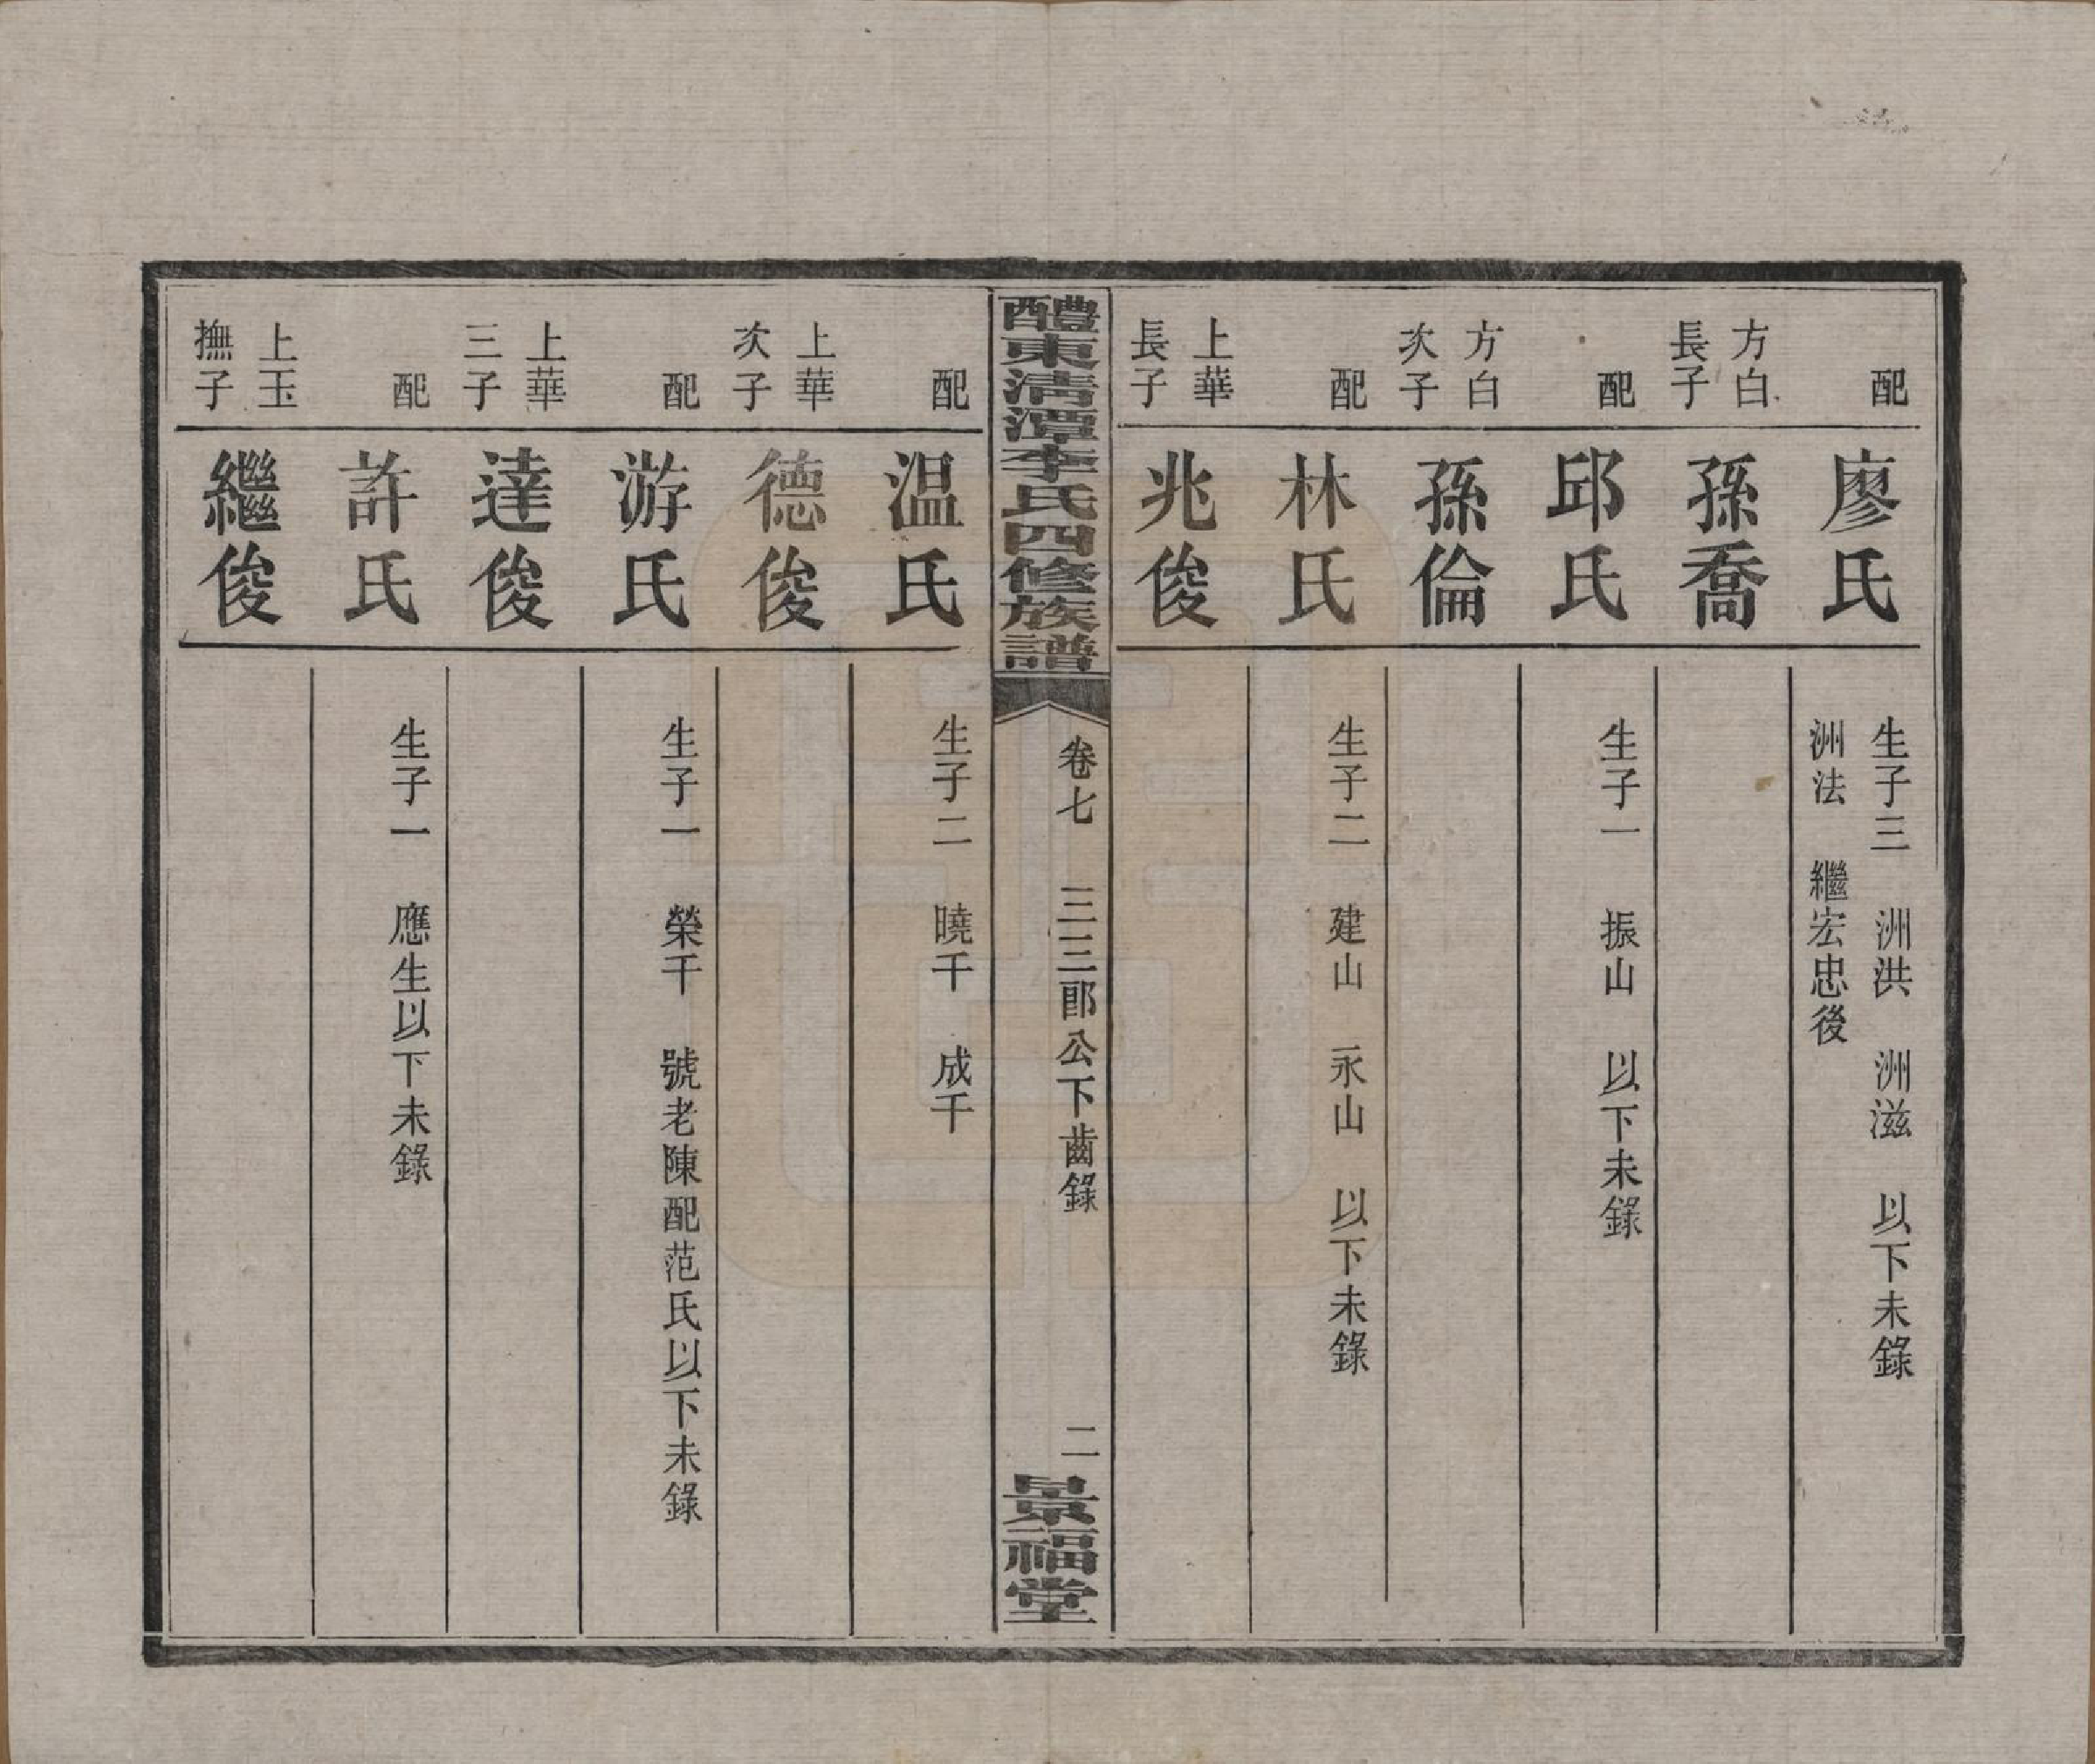 配
廖氏
生子三 洲洪 洲滋 以下未錄
洲法 繼宏忠後
方白
長子
孫喬
配
邱氏
生子一 振山 以下未錄
方白
次子
孫倫
配
林氏
生子二 建山 永山 以下未錄
上華
長子
兆俊
醴東清潭李氏四修族譜
卷七 三三郎公下齒錄
二
景福堂
配
温氏
生子二 曉千 成千
上華
次子
德俊
配
游氏
生子一 榮千 號老陳配范氏以下未錄
上華
三子
達俊
配
許氏
生子一 應生以下未錄
上玉
撫子
繼俊